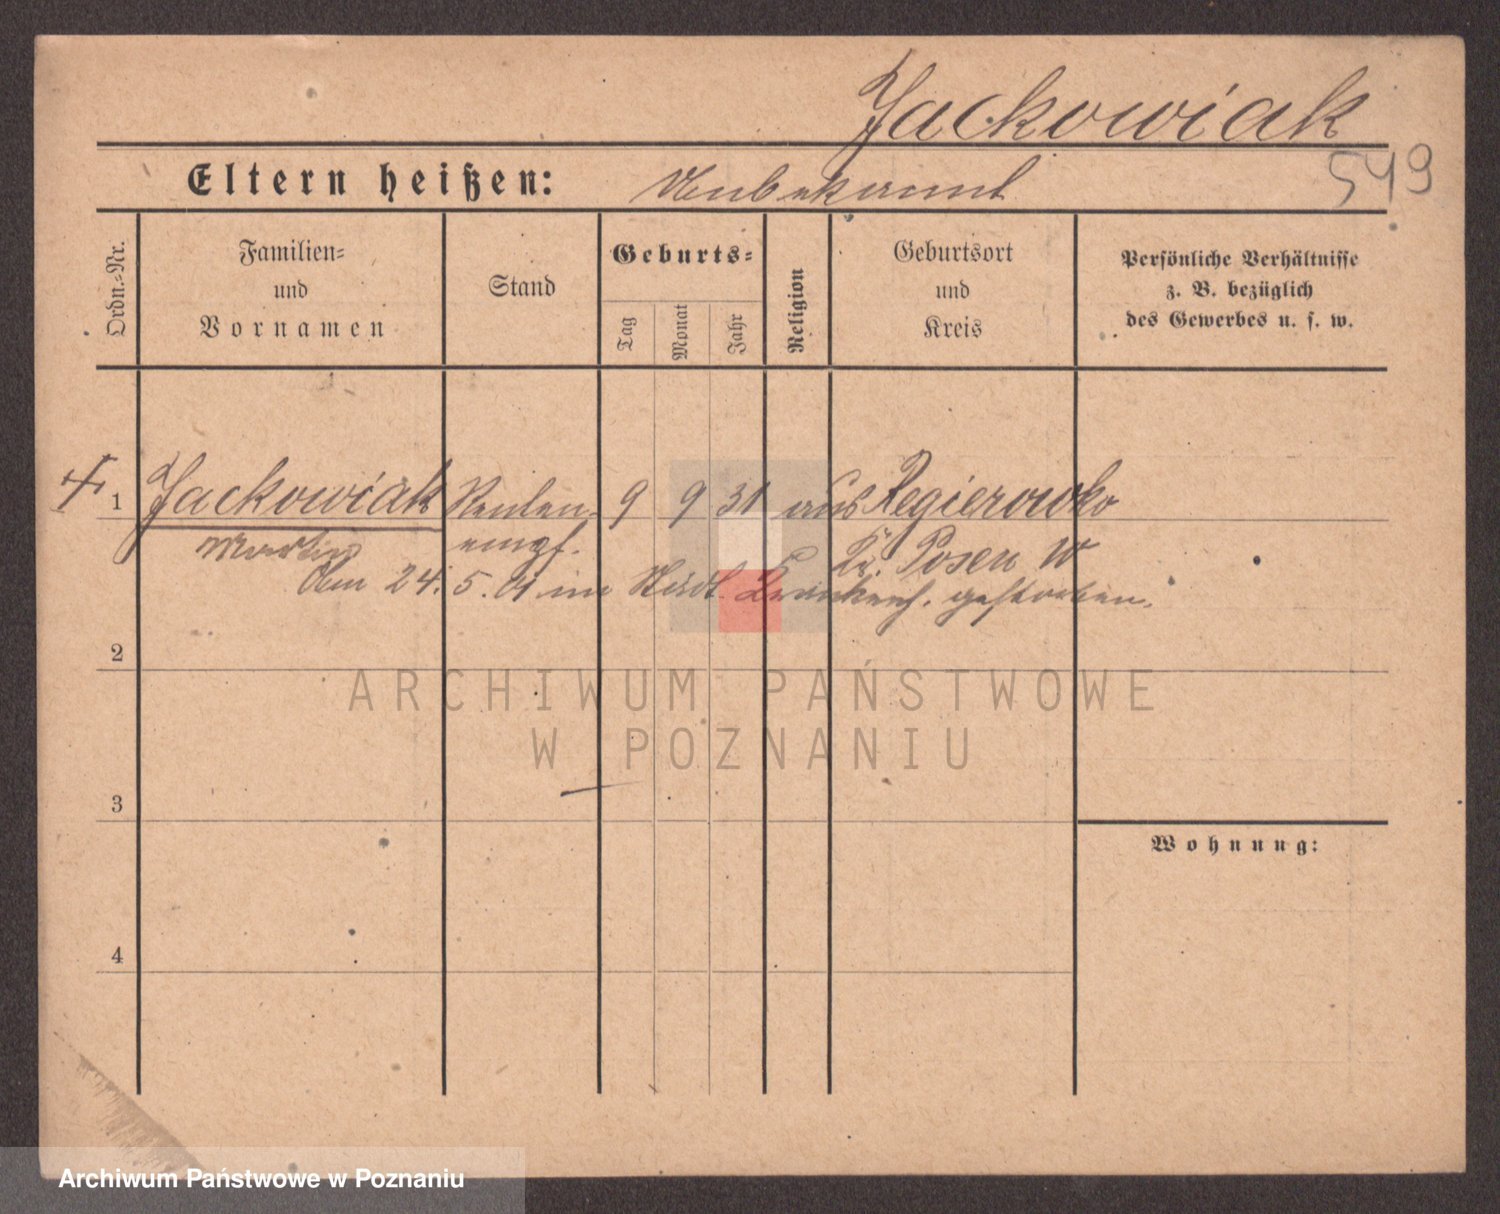 Jackowiak
549
Eltern heißen: Unbekannt
Ordn.-Nr.
Familien-
und
Vornamen
Stand
Geburts-
Tag
Monat
Jahr
Religion
Geburtsort
und
Kreis
Persönliche Verhältnisse
z. B. bezüglich
des Gewerbes u. s. w.
1 Jackowiak Renten- 9 9 31 aus Regierowko
Martin empf. Kr. Posen W
Am 24. 5. 01 im Städt. Krankenh. gestorben.
2
ARCHIWUM PAŃSTWOWE
W POZNANIU
3
Wohnung:
4
Archiwum Państwowe w Poznaniu